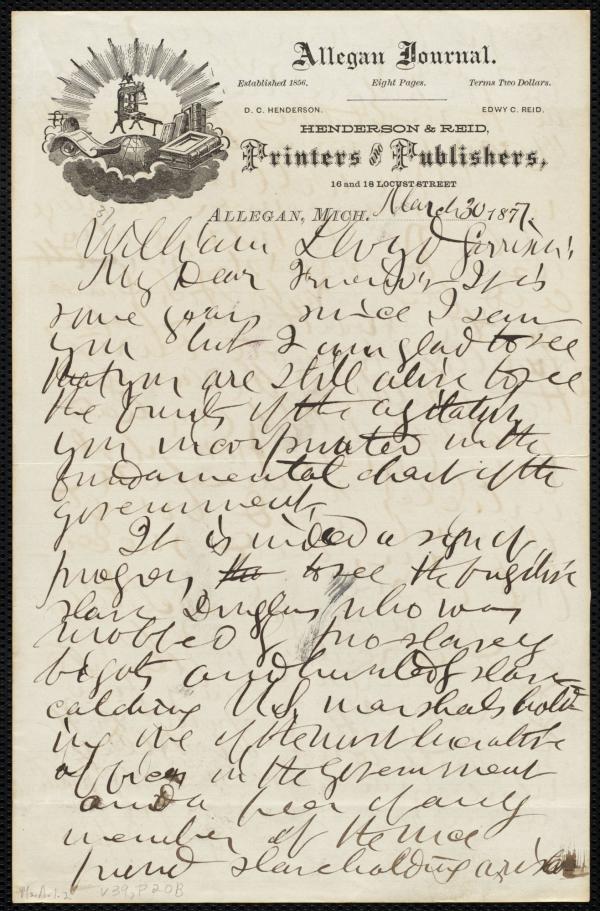 Allegan Journal.
Established 1856. Eight Pages. Terms Two Dollars.
D. C. HENDERSON. EDWY C. REID.
HENDERSON & REID,
Printers and Publishers,
16 and 18 LOCUST STREET
ALLEGAN, MICH. March 30 1877.
William Lloyd Garrison:
My Dear Friend:- It is
some years since I saw
you but I am glad to see
that you are still alive to see
the fruits of the agitation
you incorporated in the
fundamental chart of the
government.
It is indeed a sign of
progress to see the fugitive
slave, Douglass, who was
mobbed by pro slavery
bigots and hunted of slave
catching U.S. marshals hold-
ing one of the most lucrative
offices in the government
and a peer of any
member of the once
proud slaveholding
V.39, P 20B